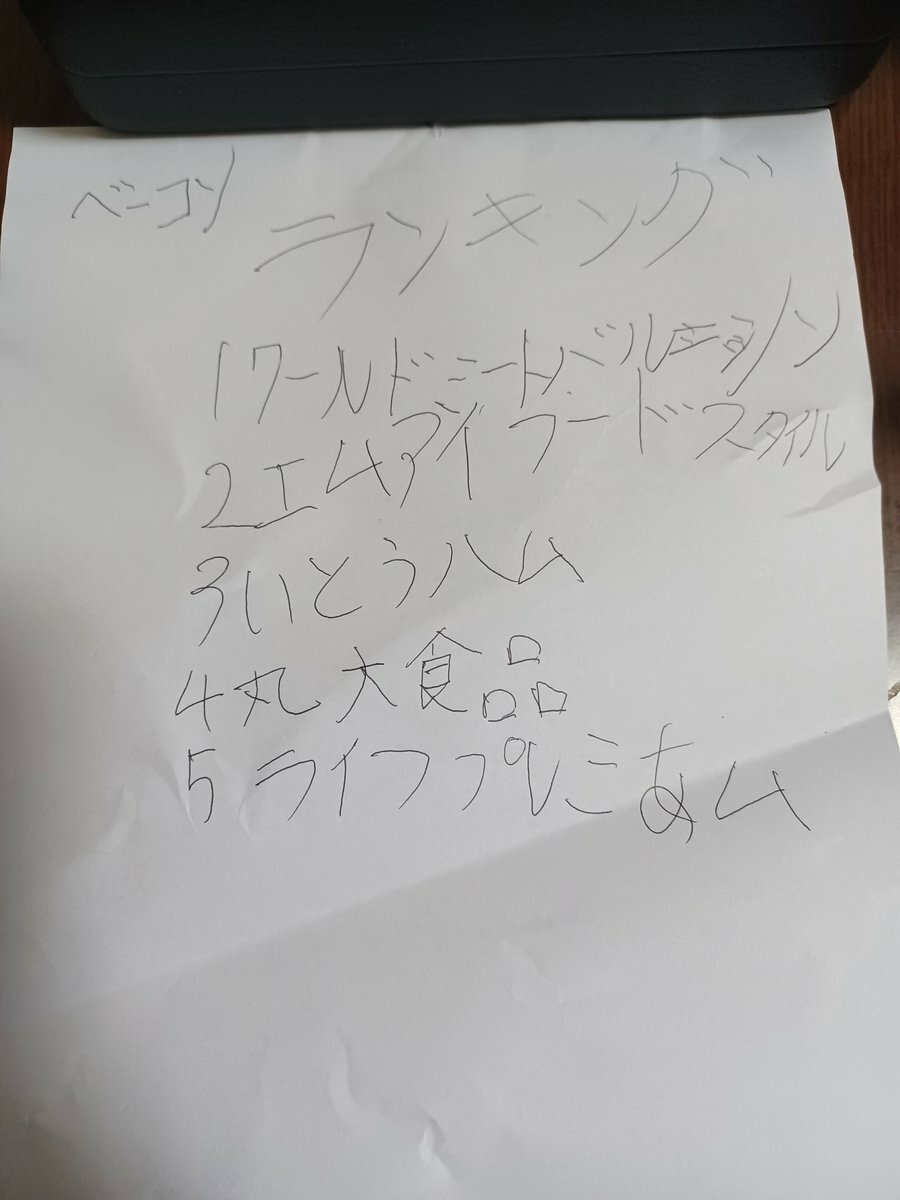 ベーコン
ランキング
1ワールドミートバルエヨシン
2エムアイフードスタイル
3いとうハム
4丸大食品
5ライフプレミあム